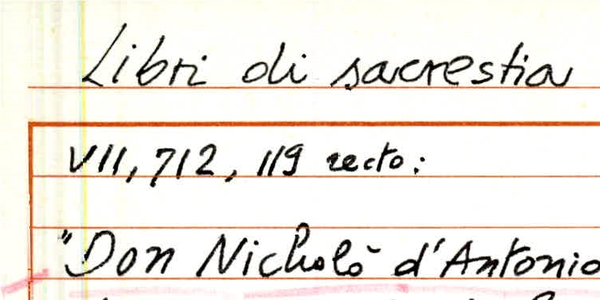 Libri di sacrestia
VII, 712, 119 recto:
"Don Nicholò d'Antonio